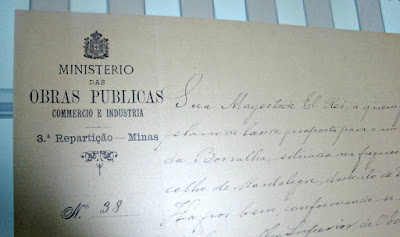 MINISTERIO
DAS
OBRAS PUBLICAS
COMMERCIO E INDUSTRIA
3.ª Repartição — Minas
N.º 38
Sua Magestade El Rei, a quem
plano de lavra proposto para a m
da Borralha, situada na fregue
celho de Montalegre, districto de
Ha por bem, conformando-se
Superior de Ob